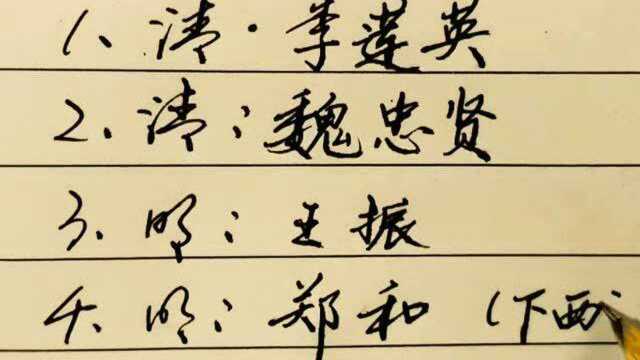 1、清·李莲英
2、清：魏忠贤
3、明：王振
4、明：郑和（下西